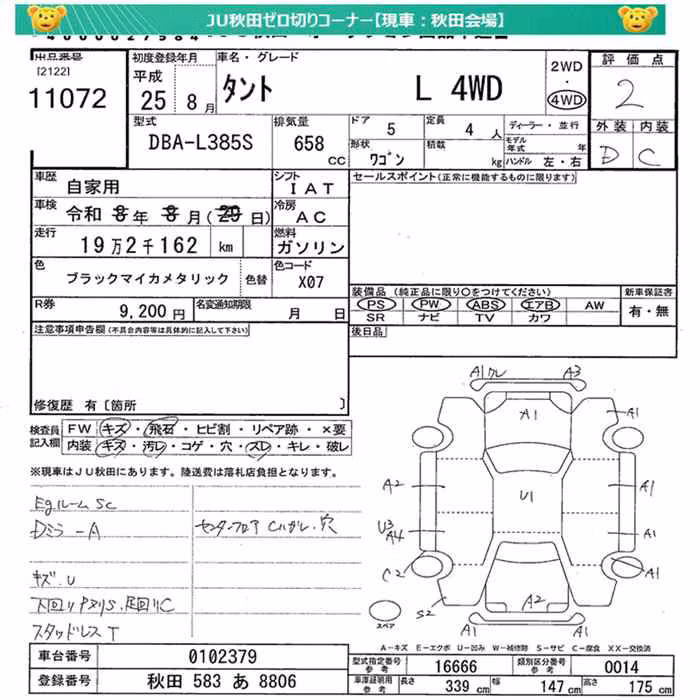 JU秋田ゼロ切りコーナー【現車：秋田会場】
出品番号
[2122]
11072
初度登録年月
平成
25年 8月
車名・グレード
タント L 4WD
2WD
・
4WD
評価点
2
外装 内装
D C
型式
DBA-L385S
排気量
658
CC
ドア
5
定員
4人
ディーラー・並行
形状
ワゴン
積載
kg
モデル年式 年
ハンドル 左・右
車歴
自家用
シフト
IAT
車検
令和 8年 8月(20日)
冷房
AC
走行
19万2千162 km
燃料
ガソリン
色
ブラックマイカメタリック
色替
色コード
X07
R券
9,200円
名変通知期限
月 日
セールスポイント(正常に機能するものに限ります)
装備品(純正品に限り○をつけてください)
新車保証書
PS PW ABS エアB AW
SR ナビ TV カワ
有・無
注意事項申告欄(不具合内容等は具体的に記入して下さい)
後日品
修復歴 有[箇所 ]
検査員記入欄
FW キズ・飛石・ヒビ割・リペア跡・×要
内装 キズ・汚レ・コゲ・穴・スレ・キレ・破レ
※現車はJU秋田にあります。陸送費は落札店負担となります。
Egルーム SC
Dミラ-A
センターフロア Cハガレ・穴
キズ.U
下回りPヌリS.足回りC
スタッドレス T
A1ワレ A3
A1 A1
A2 U1 A1
U3
A4 A1
C2 A1
S2 A2
A1 A1
スペア
A-キズ E-エクボ U-凹み W-補修跡 S-サビ C-腐食 XX-交換済
車台番号 0102379
登録番号 秋田 583 あ 8806
型式指定番号参考 16666
類別区分番号参考 0014
車庫証明用参考 長さ 339cm 幅 147cm 高さ 175cm